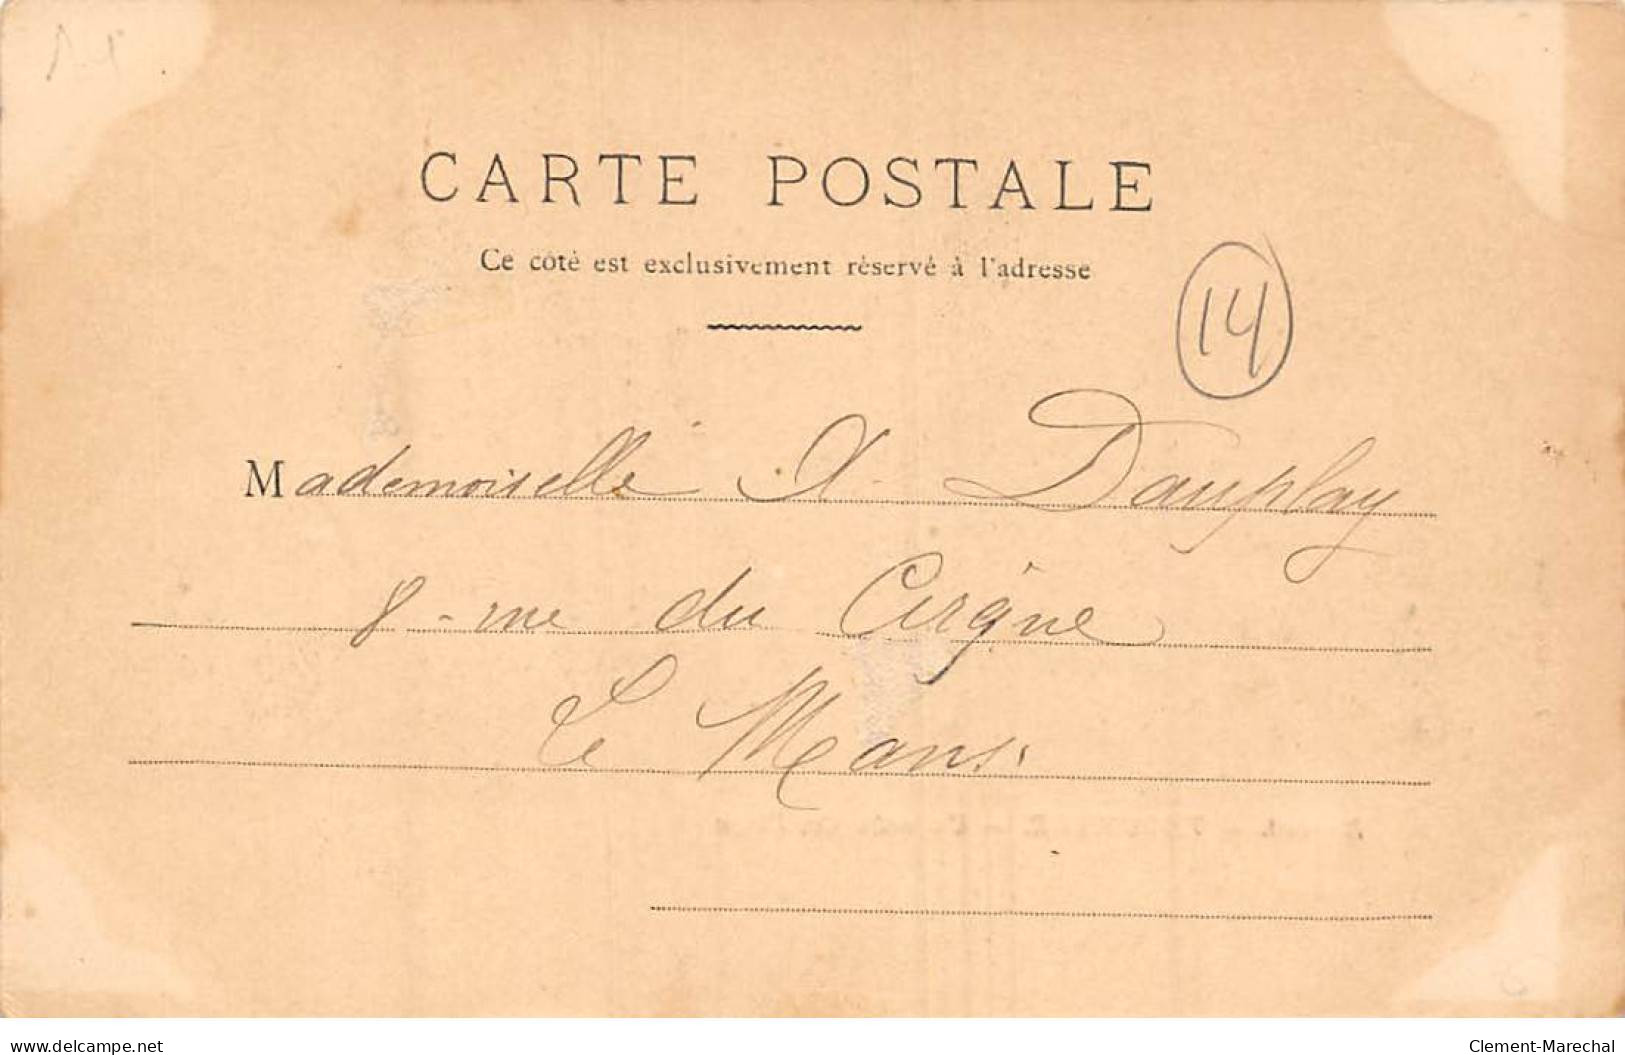 CARTE POSTALE
Ce côté est exclusivement réservé à l'adresse
14
Mademoiselle X. Dauplay
8 - rue du Cirque
Le Mans.
www.delcampe.net
Clement-Marechal